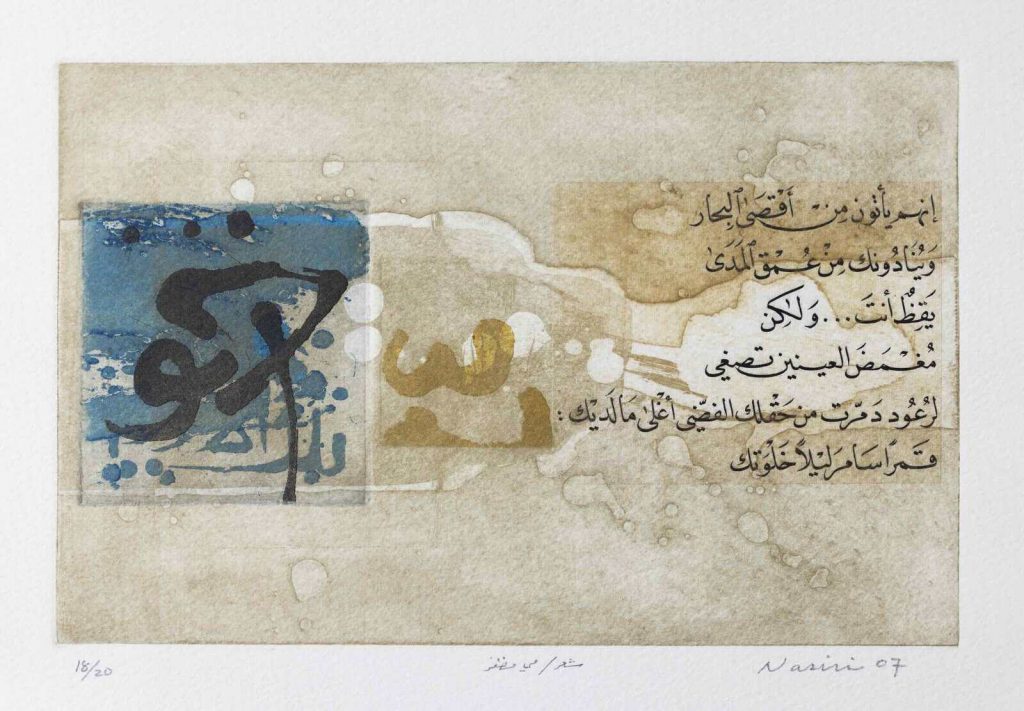 إنهم يأتون مِنْ أَقْصَىٰ ٱلبِحار
وَيُنَادُونك مِنْ عُمْقِ ٱلْمَدَىٰ
يَقِظٌ أنتَ...وَلٰكِن
مُغْمَضَ العينين تصغي
لرُعُود دَمّرت من حَقْلك الفضّي أغْلىٰ مَا لَدَيْك :
قمرًا سَامرَ لَيْلاً خَلْوَتك
18/20
شعر / مي مظفر
Nasiri 07